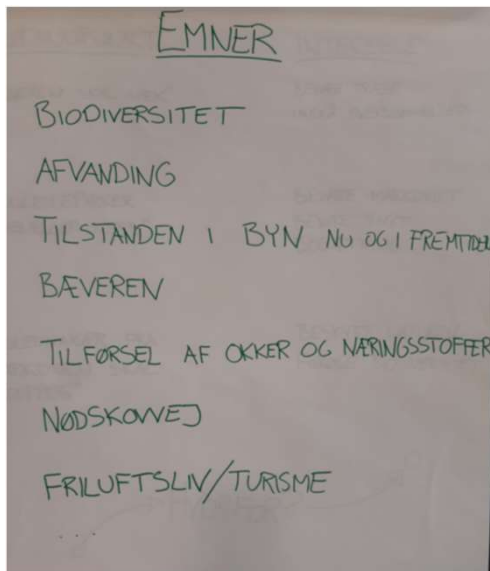 EMNER
BIODIVERSITET
AFVANDING
TILSTANDEN I BYN NU OG I FREMTIDEN
BÆVEREN
TILFØRSEL AF OKKER OG NÆRINGSSTOFFER
NØDSKOVVEJ
FRILUFTSLIV/TURISME
....